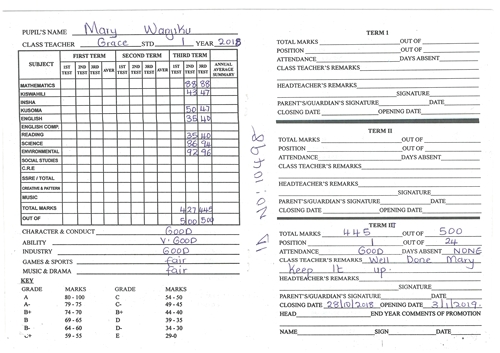 PUPIL'S NAME Mary Wagiku
CLASS TEACHER Grace STD 1 YEAR 2018
SUBJECT FIRST TERM SECOND TERM THIRD TERM ANNUAL AVERAGE SUMMARY
1ST TEST 2ND TEST 3RD TEST AVER 1ST TEST 2ND TEST 3RD TEST AVER 1ST TEST 2ND TEST 3RD TEST
MATHEMATICS 88 88
KISWAHILI 43 47
INSHA
KUSOMA 50 47
ENGLISH 35 40
ENGLISH COMP.
READING 35 40
SCIENCE 86 94
ENVIRONMENTAL 92 96
SOCIAL STUDIES
C.R.E
SSRE / TOTAL
CREATIVE & PATTERN
MUSIC
TOTAL MARKS 427 445
OUT OF 500 500
CHARACTER & CONDUCT GOOD
ABILITY V. GOOD
INDUSTRY GOOD
GAMES & SPORTS fair
MUSIC & DRAMA fair
KEY
GRADE MARKS GRADE MARKS
A 80 - 100 C 54 - 50
A- 79 - 75 C- 49 - 45
B+ 74 - 70 B+ 44 - 40
B 69 - 65 D 39 - 35
B- 64 - 60 D- 34 - 30
C+ 59 - 55 E 29-0
ID NO: 10498
TERM I
TOTAL MARKS OUT OF
POSITION OUT OF
ATTENDANCE DAYS ABSENT
CLASS TEACHER'S REMARKS
HEADTEACHER'S REMARKS
SIGNATURE
PARENT'S/GUARDIAN'S SIGNATURE DATE
CLOSING DATE OPENING DATE
TERM II
TOTAL MARKS OUT OF
POSITION OUT OF
ATTENDANCE DAYS ABSENT
CLASS TEACHER'S REMARKS
HEADTEACHER'S REMARKS
SIGNATURE
PARENT'S/GUARDIAN'S SIGNATURE DATE
CLOSING DATE OPENING DATE
TERM III
TOTAL MARKS 445 OUT OF 500
POSITION 1 OUT OF 24
ATTENDANCE GOOD DAYS ABSENT NONE
CLASS TEACHER'S REMARKS Well Done Mary
Keep It up.
HEADTEACHER'S REMARKS
SIGNATURE
PARENT'S/GUARDIAN'S SIGNATURE DATE
CLOSING DATE 2018 OPENING DATE 3/1/2019
HEAD END YEAR COMMENTS OF PROMOTION
NAME SIGN DATE